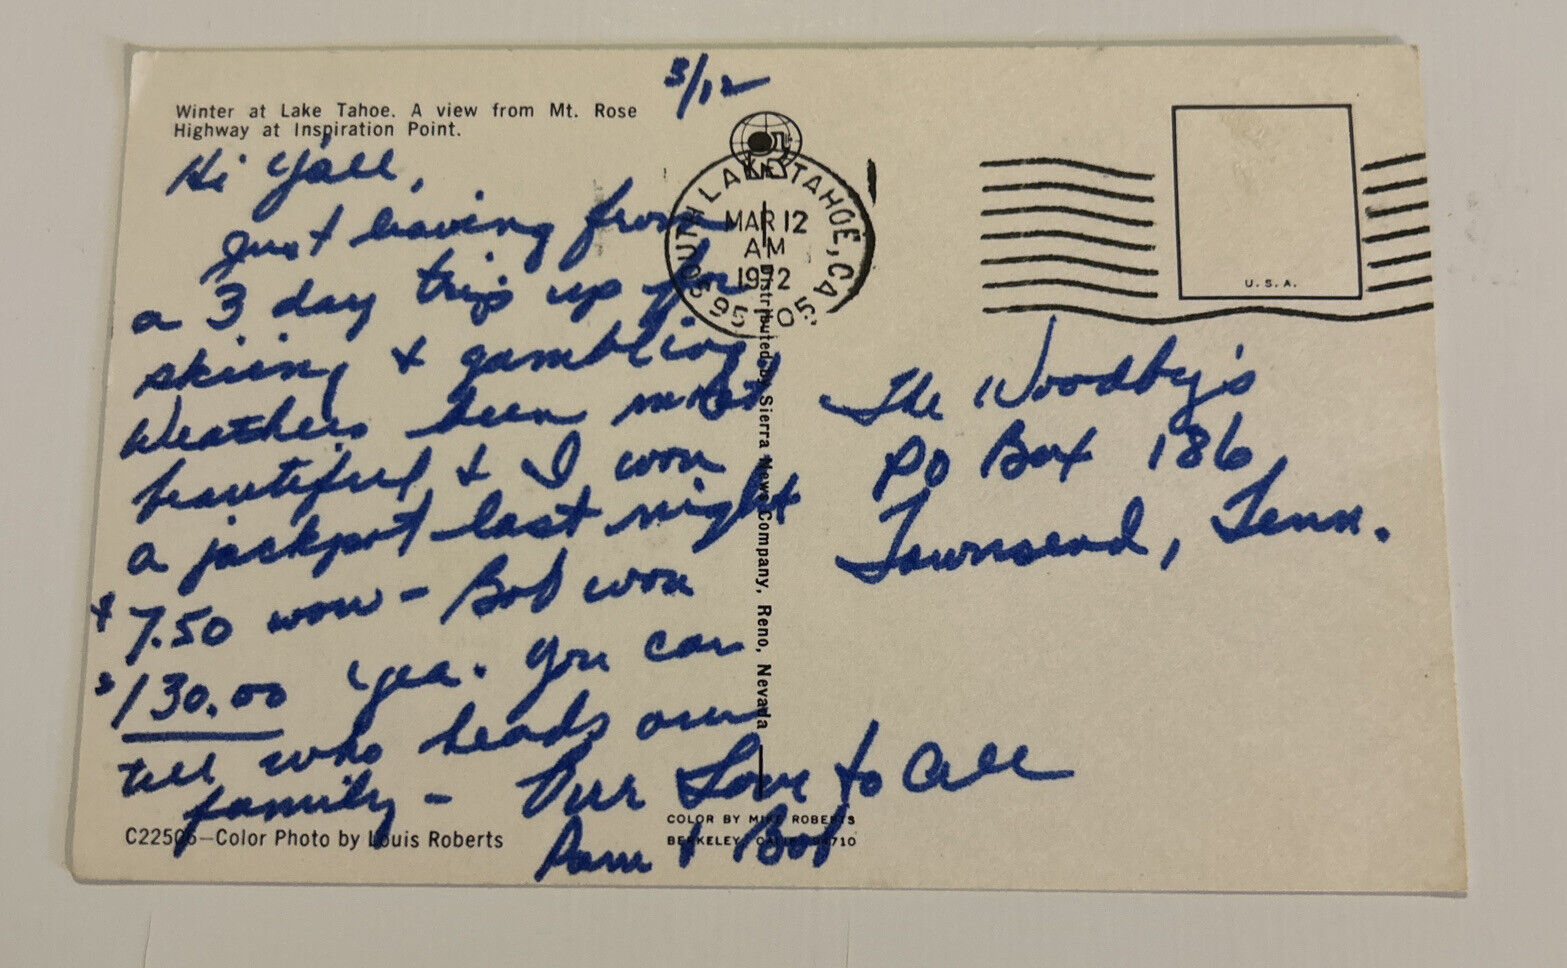 3/12
Winter at Lake Tahoe. A view from Mt. Rose
Highway at Inspiration Point.
Hi Y'all,
Just leaving from
a 3 day trip up for
skiing & gambling.
Weathers been most
beautiful & I won
a jackpot last night
7.50 wow - Bob won
$130.00 yea. You can
tell who heads our
family - Our Love to All
Pam & Bob
C22505—Color Photo by Louis Roberts
SOUTH LAKE TAHOE, CA
MAR 12
AM
1972
95705
Distributed by Sierra News Company, Reno, Nevada
COLOR BY MIKE ROBERTS
BERKELEY, CALIF. 94710
U.S.A.
The Woodby's
PO Box 186
Townsend, Tenn.